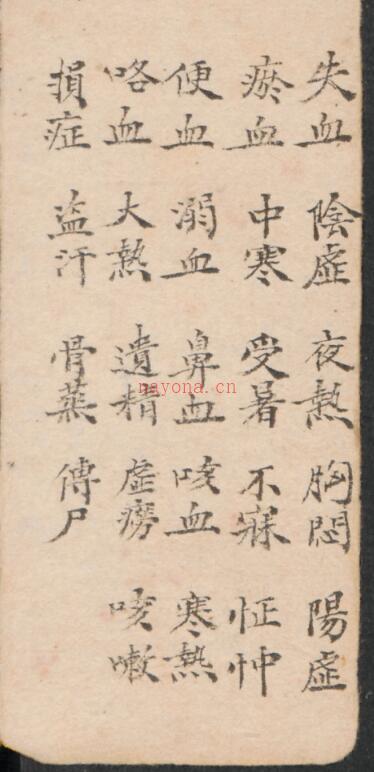 失血 陰虛 夜熱 胸悶 陽虛
瘀血 中寒 受暑 不寐 怔忡
便血 溺血 鼻血 咳血 寒熱
咯血 大熱 遺精 虛癆 咳嗽
損症 盗汗 骨蒸 傅尸
nayona.cn